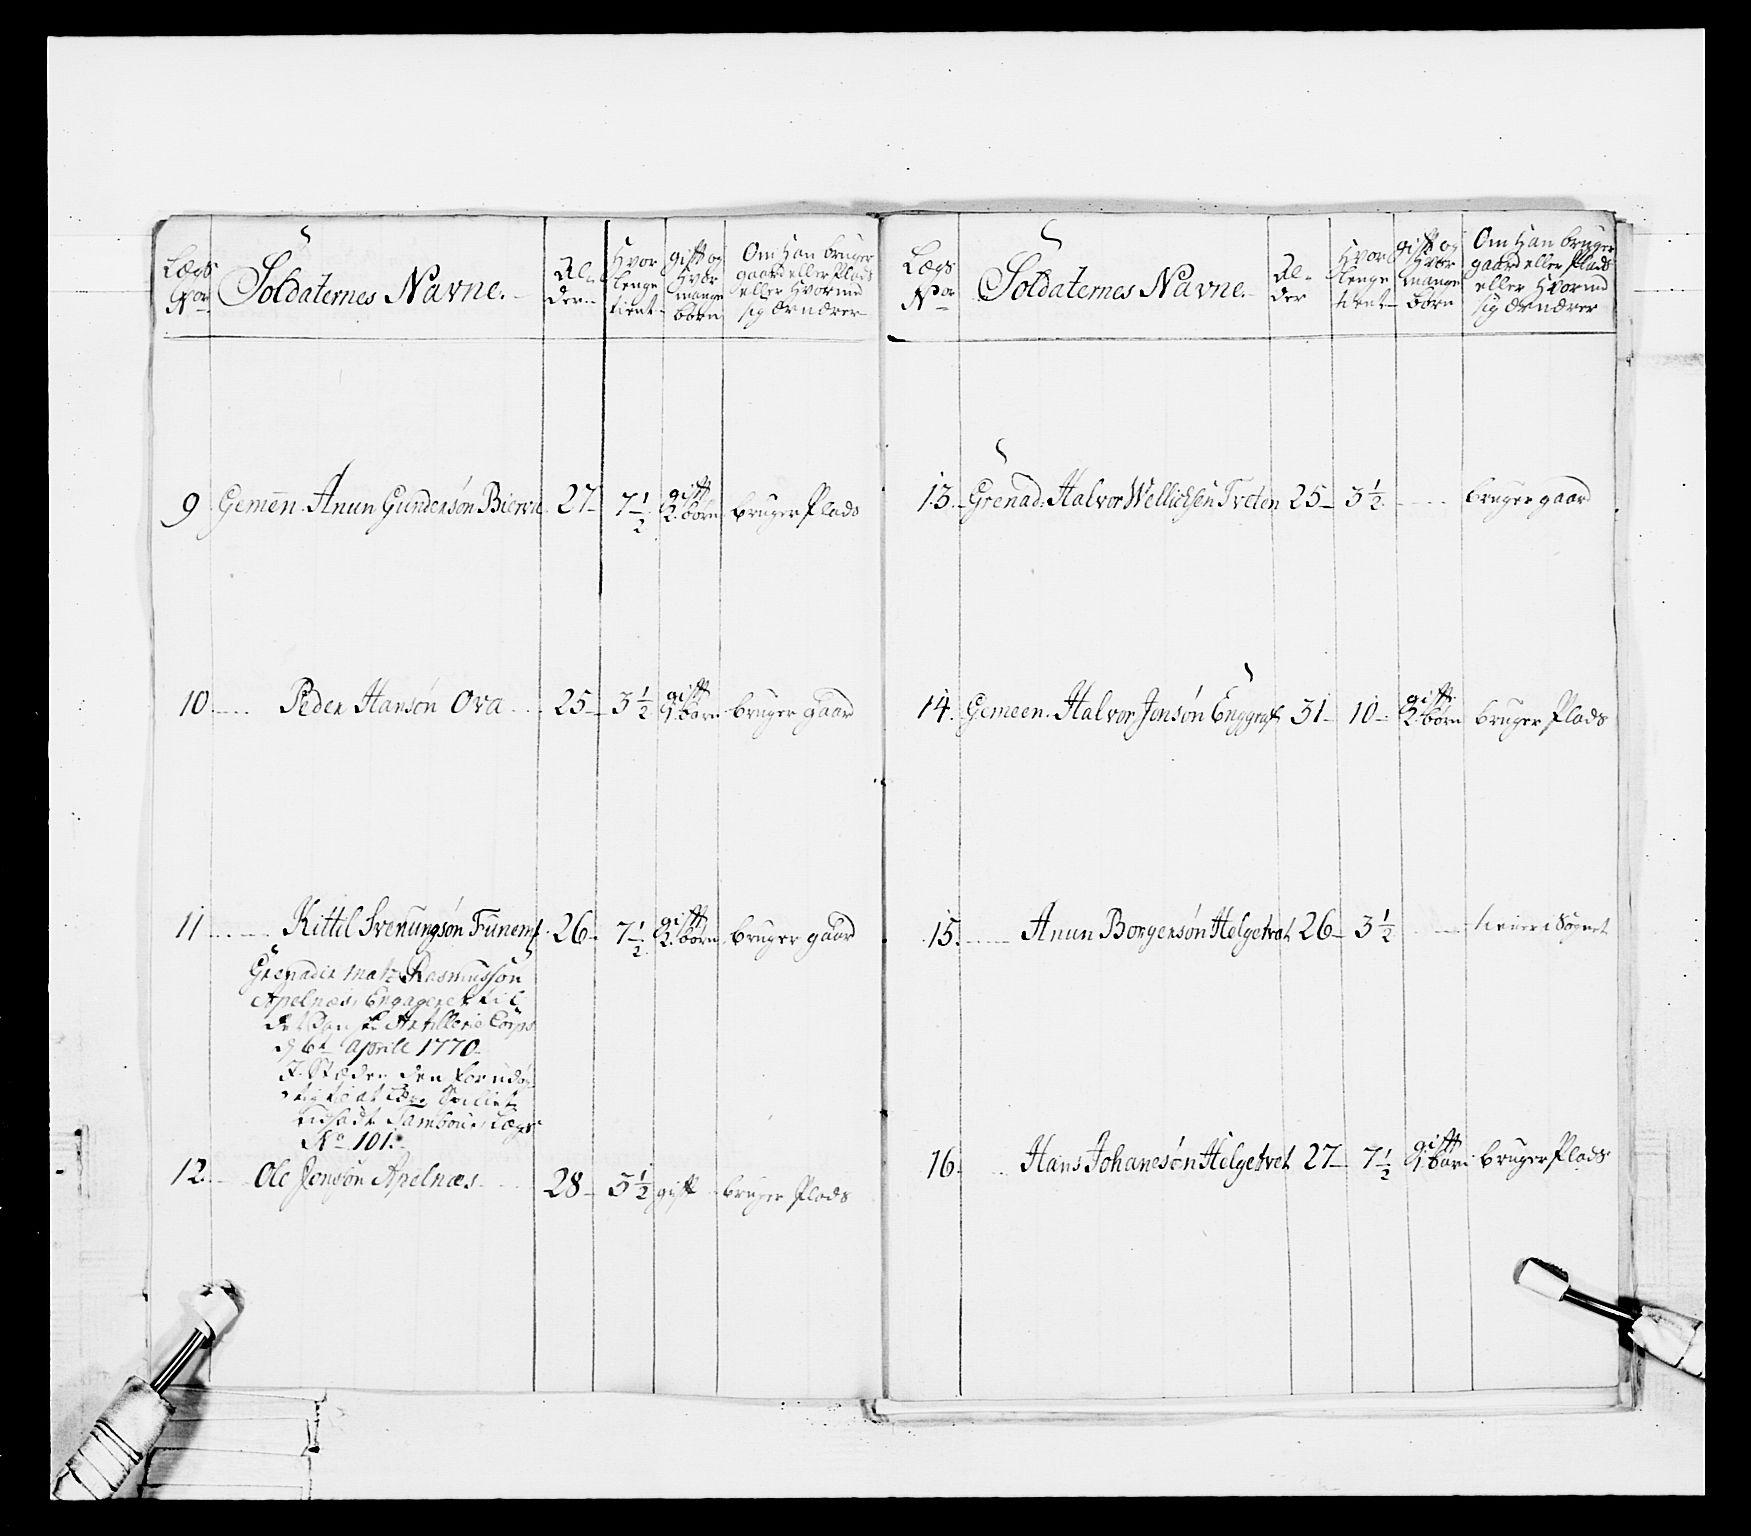 Lægs
No
Soldaternes Navne.
Al-
der
Hvor
lenge
tient
gift og
Hvor
mange
børn
Om Han bruger
gaard eller Plads
eller Hvormed
sig ærnærer
9 Gemen. Anun Gundersøn Bierv 27 7 1/2 gift 2. børn bruger Plads
10 Peder Hansøn Ova 25 3 1/2 gift 1. barn bruger gaard
11 Kittil Svenungsøn 26 7 1/2 gift 2. børn bruger gaard
Grenadir Rasmusson
Apelnæs, Engageret til
det Danske Artillerie Corps
d 6t Aprill 1770
I Stæden den
til at
Tambour, Lægs
No 101.
12. Ole Jonsøn Apelnæs 28 3 1/2 gift bruger Plads
Lægs
No
Soldaternes Navne.
Al-
der
Hvor
lenge
tient
gift og
Hvor
mange
børn
Om Han bruger
gaard eller Plads
eller Hvormed
sig ærnærer
13. Grenad. Halvor Tveten 25 3 1/2 bruger gaard
14. Gemeen. Halvor Jonsøn Enggraf 31 10 gift 2 børn bruger Plads
15. Anun Borgersøn Helgetvet 26 3 1/2 tiener i Sognet
16. Hans Johanesøn Helgetvet 27 7 1/2 gift 1 barn bruger Plads